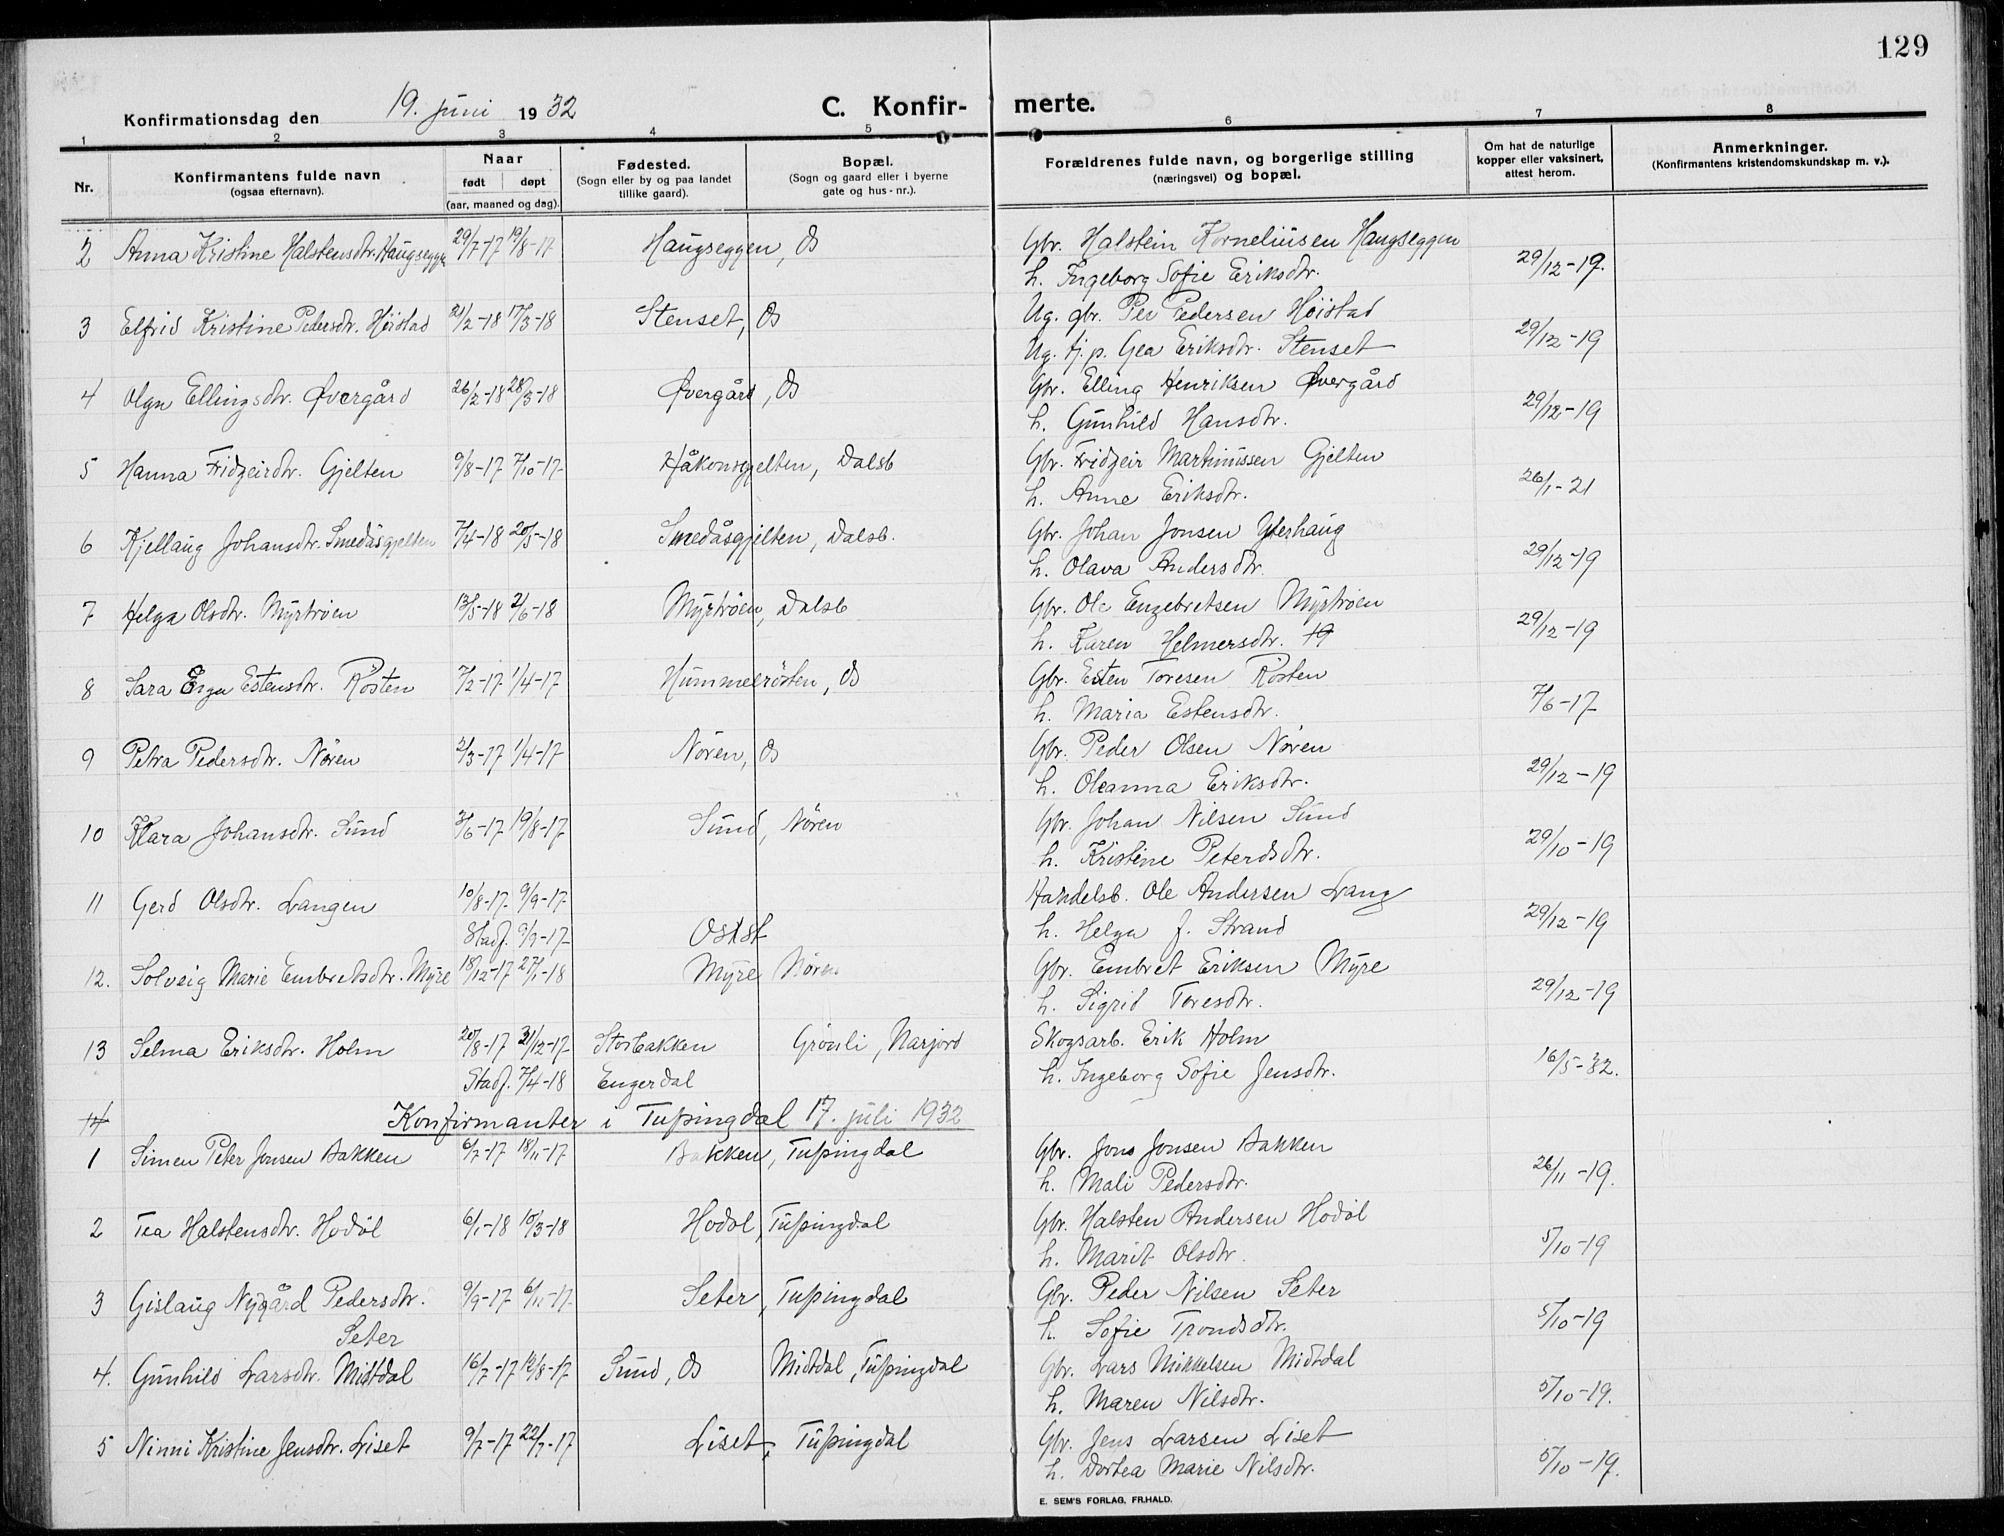 129
Konfirmationsdag den 19. juni 1932
C. Konfir- merte.
1 2 3 4 5 6 7 8
Nr.
Konfirmantens fulde navn
(ogsaa efternavn).
Naar
født døpt
(aar, maaned og dag).
Fødested.
(Sogn eller by og paa landet
tillike gaard).
Bopæl.
(Sogn og gaard eller i byerne
gate og hus-nr.).
Forældrenes fulde navn, og borgerlige stilling
(næringsvei) og bopæl.
Om hat de naturlige
kopper eller vaksinert,
attest herom.
Anmerkninger.
(Konfirmantens kristendomskundskap m. v.).
2 Anna Kristine Halstensdtr. Haugseggen 29/7-17 19/8-17 Haugseggen, Os Gbr. Halstein Korneliusen Haugseggen
h. Ingeborg Sofie Eriksdtr. 29/12-19.
3 Elfrid Kristine Pedersdtr. Høistad 21/2-18 17/3-18 Stenset, Os Ug. gbr. Per Pedersen Høistad
Ug. tj.p. Gea Eriksdtr. Stenset 29/12-19
4 Olga Ellingsdtr. Øvergård 26/2-18 28/3-18 Øvergård, Os Gbr. Elling Henriksen Øvergård
h. Gunhild Hansdtr. 29/12-19
5 Hanna Fridgeirdtr. Gjelten 9/8-17 7/10-17 Håkonsgjelten, Dalsb Gbr. Fridgeir Martinussen Gjelten
h. Anne Eriksdtr. 26/1-21
6 Kjellaug Johansdtr. Smedåsgjelten 7/4-18 20/5-18 Smedåsgjelten, Dalsb. Gbr. Johan Jonsen Yterhaug
h. Olava Andersdtr. 29/12-19
7 Helga Olsdtr. Myrtrøen 13/5-18 2/6-18 Myrtrøen, Dalsb Gbr. Ole Engebretsen Myrtrøen
h. Karen Helmersdtr. 29/12-19
8 Sara Enga Estensdtr. Røsten 7/2-17 1/4-17 Hummelrøsten, Os Gbr. Esten Toresen Røsten
h. Maria Estensdtr. 7/6-17
9 Petra Pedersdtr. Nøren 2/3-17 1/4-17 Nøren, Os Gbr. Peder Olsen Nøren
h. Oleanna Eriksdtr. 29/12-19
10 Klara Johansdtr. Sund 3/6-17 19/8-17 Sund, Nøren Gbr. Johan Nilsen Sund
h. Kristine Petersdtr. 29/10-19
11 Gerd Olsdtr. Langen 10/8-17 9/9-17 Handelsb. Ole Andersen Lang
Stadf. 9/9-17 Os st h. Helga J. Strand 29/12-19
12. Solveig Marie Embretsdtr. Myre 18/12-17 27/1-18 Myre Nøren Gbr. Embret Eriksen Myre
h. Sigrid Toresdtr. 29/12-19
13 Selma Eriksdtr. Holm 20/8-17 31/12-17 Storbakken Grønli, Narjord Skogsarb. Erik Holm
Stadf. 7/4-18 Engerdal h. Ingeborg Sofie Jensdtr. 16/5-32.
14 Konfirmanter i Tufsingdal 17. juli 1932
1 Simen Peter Jonsen Bakken 6/7-17 18/11-17 Bakken, Tufsingdal Gbr. Jons Jonsen Bakken
h. Mali Pedersdtr. 26/11-19.
2 Tea Halstensdtr. Hodøl 6/1-18 10/3-18 Hodøl, Tufsingdal Gbr. Halsten Andersen Hodøl
h. Marit Olsdtr. 5/10-19
3 Gislaug Nygård Pedersdtr. 9/9-17 6/11-17 Seter, Tufsingdal Gbr. Peder Nilsen Seter
Seter h. Sofie Trondsdtr. 5/10-19
4. Gunhild Larsdtr. Midtdal 16/7-17 12/8-17 Sund, Os Midtdal, Tufsingdal Gbr. Lars Mikkelsen Midtdal
h. Maren Nilsdtr. 5/10-19.
5 Ninni Kristine Jensdtr. Liset 9/7-17 22/7-17 Liset, Tufsingdal Gbr. Jens Larsen Liset
h. Dortea Marie Nilsdtr. 5/10-19.
E. SEM'S FORLAG, FR.HALD.